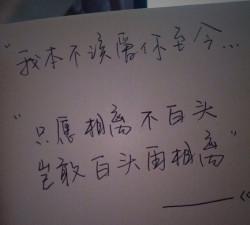 “我本不该留你至今...
“只愿相离不白头
岂敢白头再相离”
——《